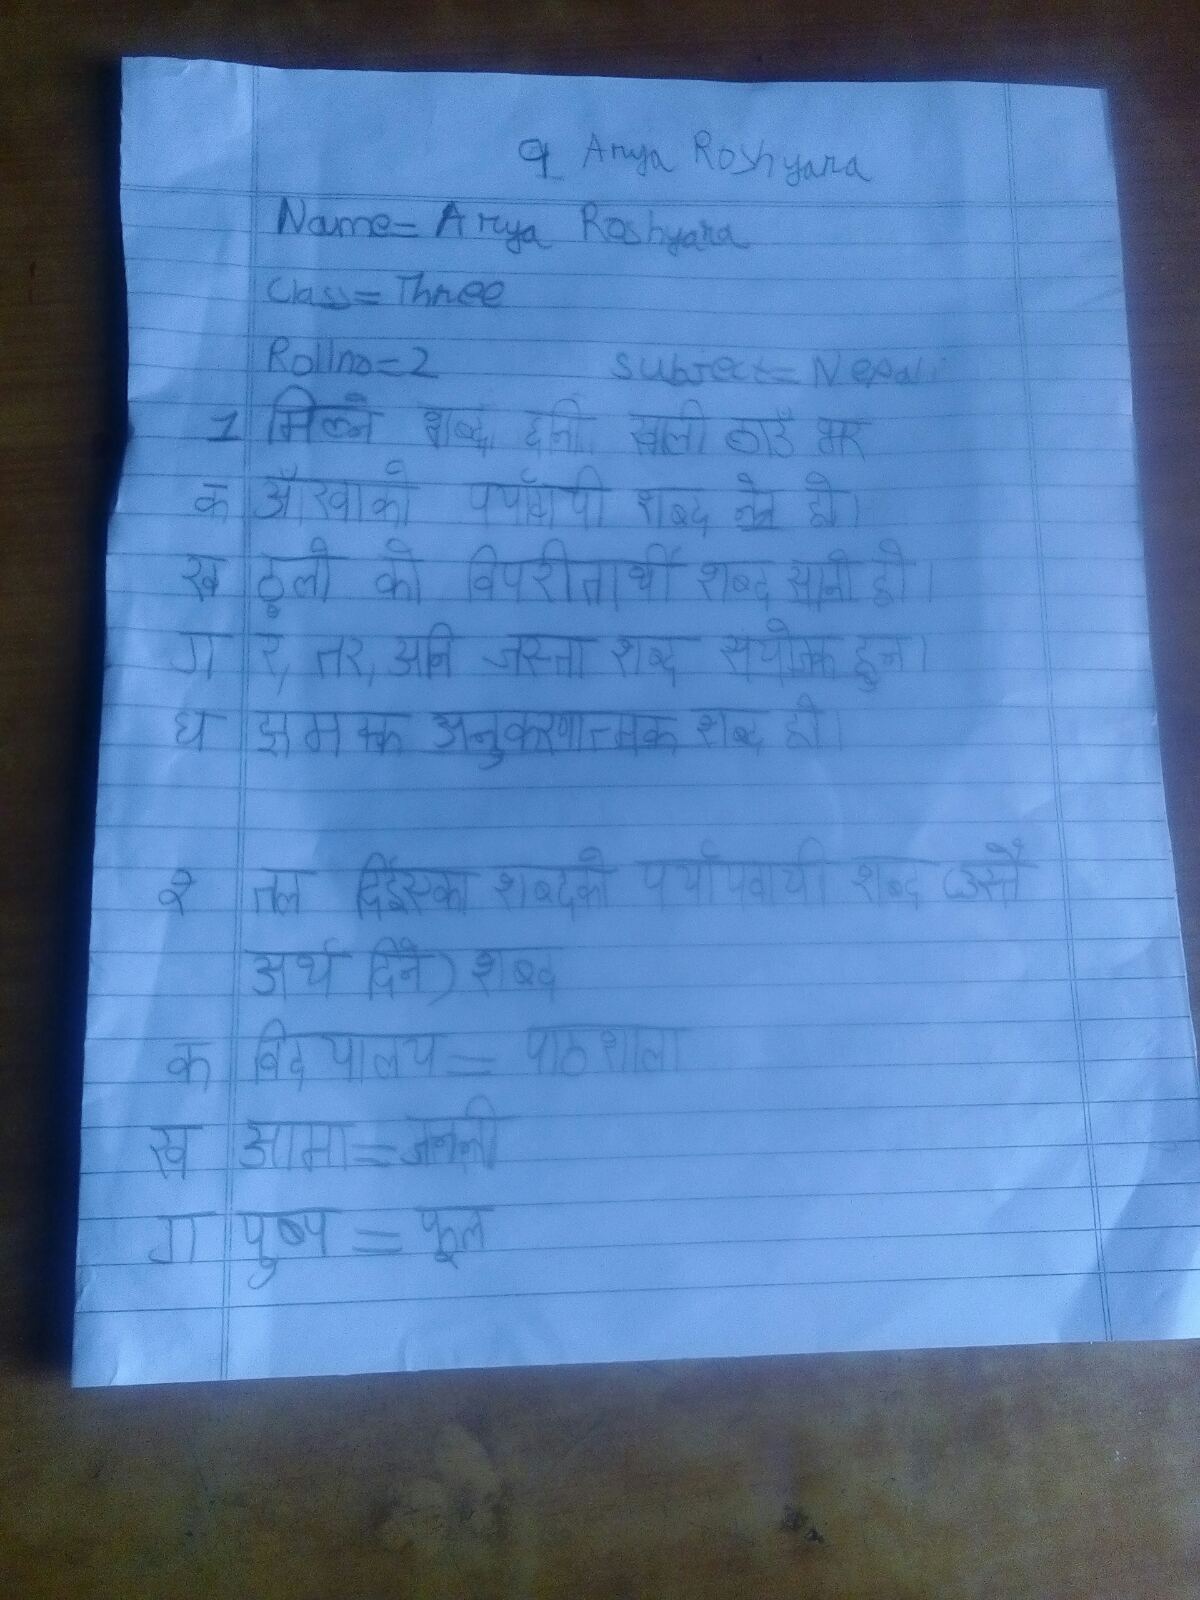 १ Arya Roshyara
Name= Arya Roshyara
Class= Three
Rollno=2 Subject= Nepali
1 मिल्ने शब्द दनी खाली ठाउँ भर
क आँखाको पर्यावापी शब्द नेत्र हो।
ख ठूलो को विपरीतार्थी शब्द सानो हो।
ग र, तर, अनि जस्ता शब्द संयोजक हुन।
घ झमक्क अनुकरणात्मक शब्द हो।
२ तल दिईएका शब्दको पर्यापवायी शब्द (उस्तै
अर्थ दिने) शब्द
क विद्यालय = पाठशाला
ख आमा = जननी
ग पुष्प = फूल